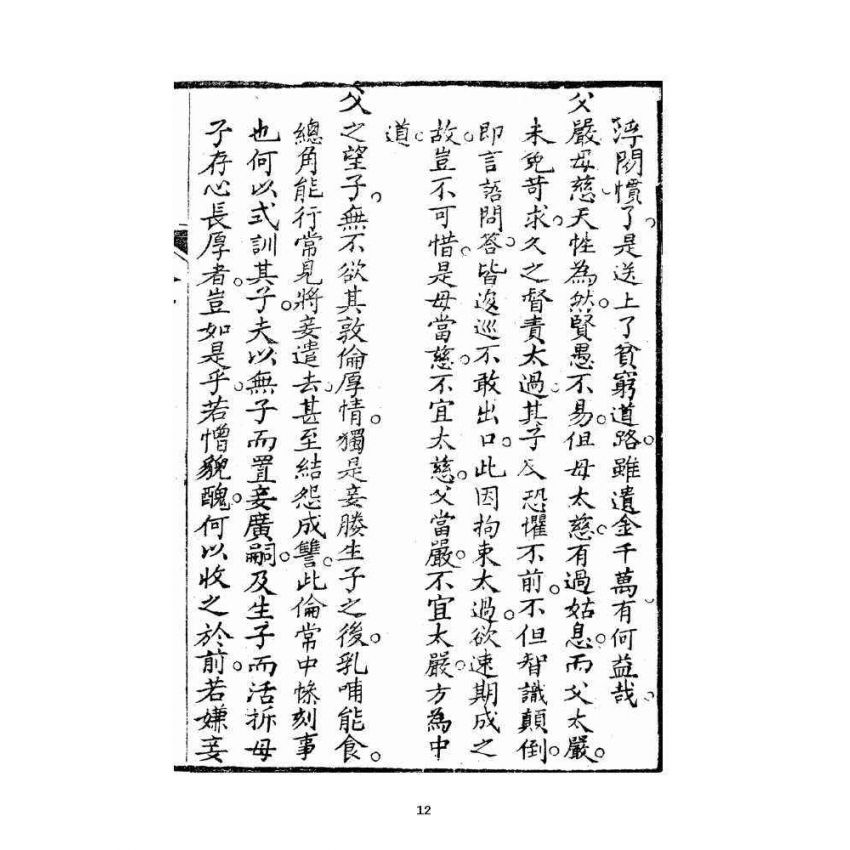 閙慣了。是送上了貧窮道路。雖遺金千萬、有何益哉、
父嚴母慈、天性為然。賢愚不易。但母太慈。有過姑息。而父太嚴。
未免苛求。久之督責太過、其子反恐懼不前。不但智識顛倒。
即言語問答。皆逡巡不敢出口。此因拘束太過。欲速期成之
故。豈不可惜。是母當慈。不宜太慈。父當嚴。不宜太嚴。方為中
道。
父之望子。無不欲其敦倫厚情。獨是妾媵生子之後。乳哺能食。
總角能行、常見將妾遣去、甚至結怨成讐。此倫常中慘刻事
也。何以式訓其子。夫以無子而置妾廣嗣。及生子而活拆母
子。存心長厚者。豈如是乎。若憎貌醜。何以收之於前。若嫌妾
12